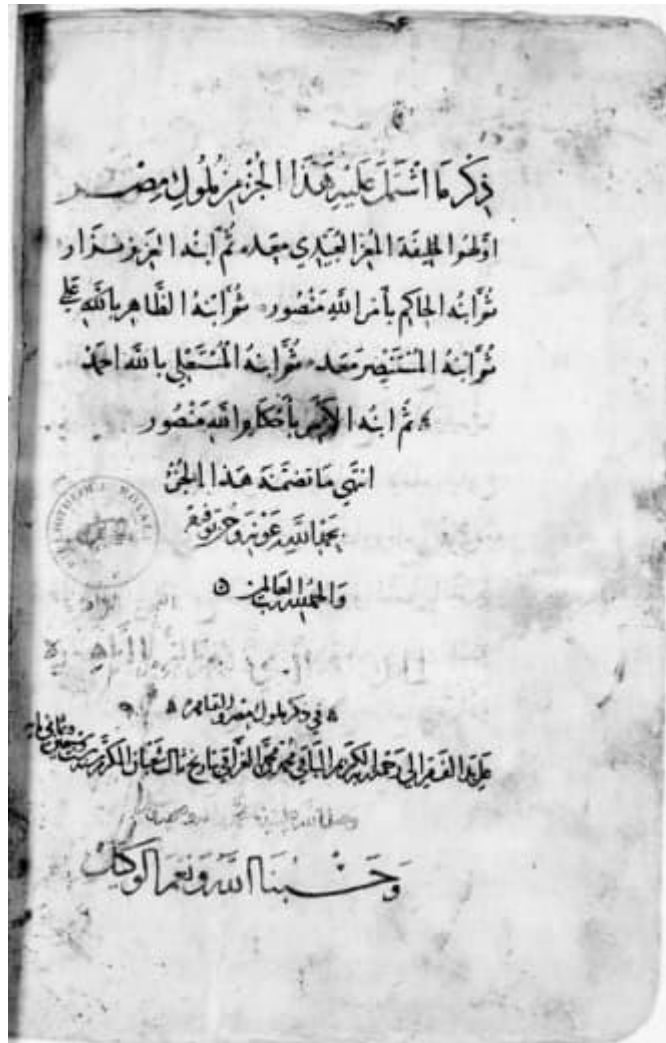 ذكر ما اشتمل عليه هذا الجزء من ملوك مصر
اولهم الخليفة المعز العبيدي معد ثم ابنه العزيز نزار
ثم ابنه الحاكم بأمر الله منصور ثم ابنه الظاهر بالله علي
ثم ابنه المستنصر معد ثم ابنه المستعلي بالله احمد
ثم ابنه الآمر بأحكام الله منصور
انتهى ما تضمنه هذا الجزء
بحمد الله وعونه وحسن توفيقه
والحمد لله رب العالمين
في ذكر ملوك مصر والقاهرة
على يد الفقير الى رحمة ربه الكريم الباقي محمد بتاريخ ثالث شعبان المكرم سنة
وحسبنا الله ونعم الوكيل